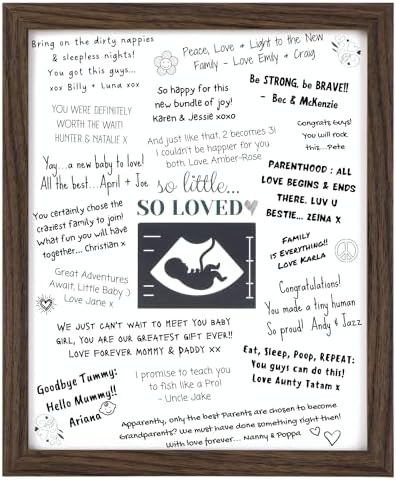 Bring on the dirty nappies
& sleepless nights!
You got this guys...
xox Billy + Luna xox
Peace, Love + Light to the New
Family - Love Emily & Craig
So happy for this
new bundle of joy!
Karen & Jessie xoxo
Be STRONG, be BRAVE!!
- Bec & McKenzie
YOU WERE DEFINITELY
WORTH THE WAIT!
HUNTER & NATALIE X
Congrats guys!
You will rock
this...Pete
And just like that, 2 becomes 3!
I couldn't be happier for you
both. Love, Amber-Rose
Yay...a new baby to love!
All the best...April + Joe
PARENTHOOD : ALL
LOVE BEGINS & ENDS
THERE. LUV U
BESTIE... ZEINA X
so little...
SO LOVED
You certainly chose the
craziest family to join!
What fun you will have
together... Christian x
FAMILY
IS EVERYTHING!!
LOVE KARLA
Great Adventures
Await, Little Baby :)
Love Jane x
Congratulations!
You made a tiny human
So proud! Andy + Jazz
WE JUST CAN'T WAIT TO MEET YOU BABY
GIRL, YOU ARE OUR GREATEST GIFT EVER!!
LOVE FOREVER MOMMY & DADDY XX
Eat, Sleep, Poop, REPEAT:
You guys can do this!
Love Aunty Tatam x
Goodbye Tummy:
Hello Mummy!!
Ariana
I promise to teach you
to fish like a Pro!
- Uncle Jake
Apparently, only the best Parents are chosen to become
Grandparents? We must have done something right then!
With love forever... Nanny & Poppa